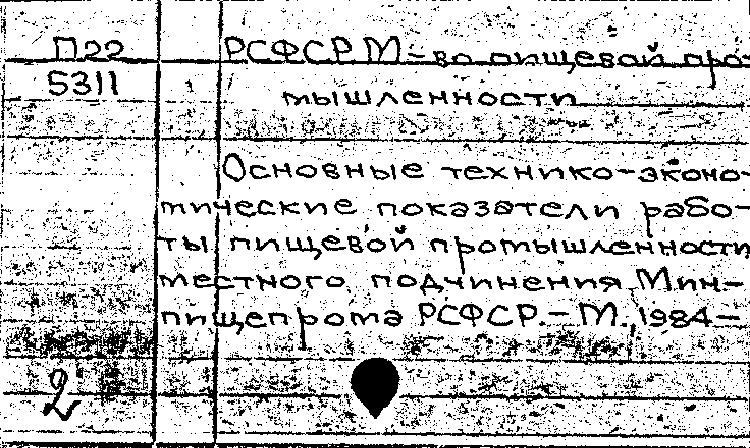 П22 РСФСР М-во пищевой про-
5311 мышленности
Основные технико-эконо-
мические показатели рабо-
ты пищевой промышленности
местного подчинения Мин-
пищепрома РСФСР.-М., 1984-
2